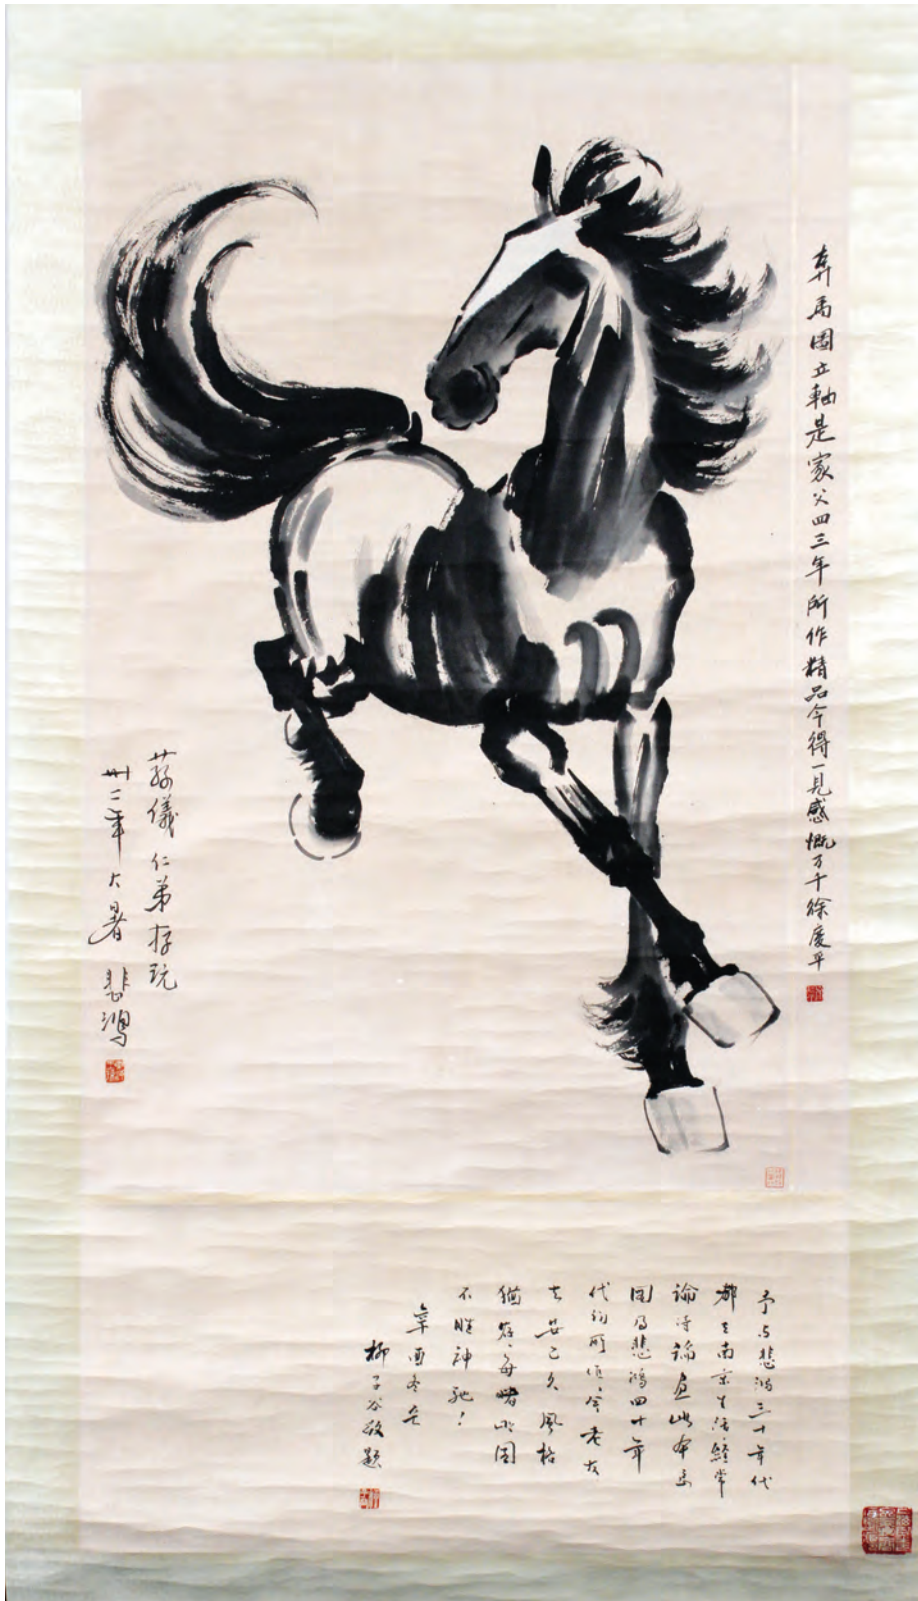 奔馬圖立軸是家父四三年所作精品今得一見感慨万千徐慶平
蓀儀仁弟存玩
卅二年大暑悲鴻
予与悲鴻三十年代
都在南京生活經常
論詩論畫此奔馬
圖乃悲鴻四十年
代初所作今老友
去世已久風格
猶存每睹此圖
不勝神馳！
辛酉冬至
柳子谷敬題